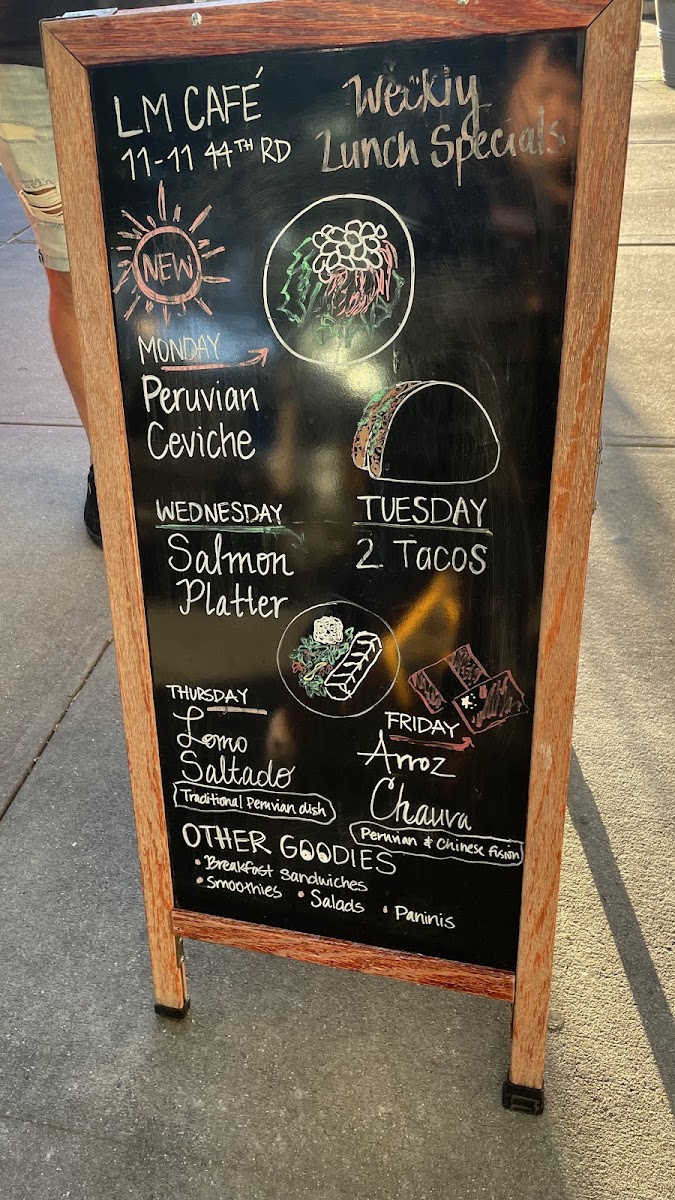 LM CAFÉ
11-11 44TH RD
Weekly
Lunch Specials
NEW
MONDAY
Peruvian
Ceviche
TUESDAY
2 Tacos
WEDNESDAY
Salmon
Platter
THURSDAY
Lomo
Saltado
Traditional Peruvian dish
FRIDAY
Arroz
Chaufa
Peruvian & Chinese Fusion
OTHER GOODIES
• Breakfast Sandwiches
• Smoothies • Salads • Paninis